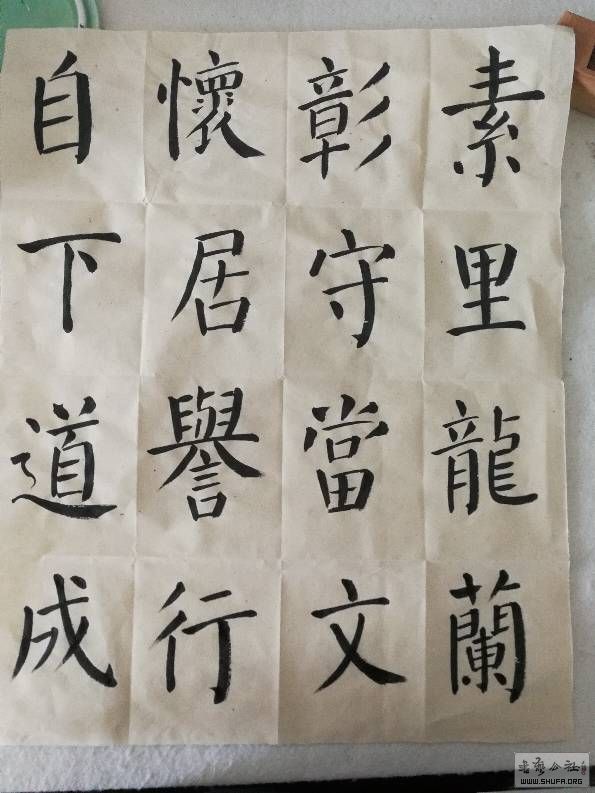 素里龍蘭
彰守當文
懷居譽行
自下道成
WWW.SHUFA.ORG